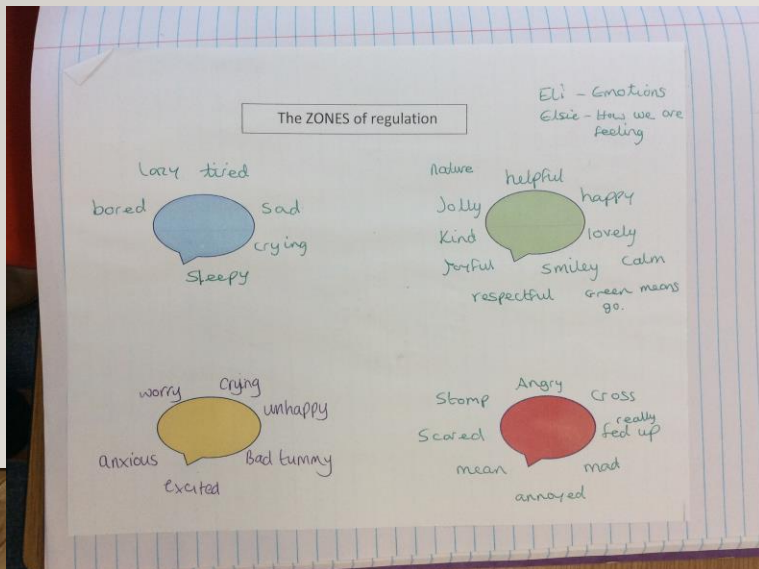 The ZONES of regulation
Eli - Emotions
Elsie - How we are
feeling
lazy tired
bored
sad
crying
sleepy
nature
helpful
happy
Jolly
Kind
lovely
Joyful
smiley
calm
respectful
Green means
go.
worry
crying
unhappy
anxious
Bad tummy
excited
Stomp
Angry
Cross
really
fed up
Scared
mean
mad
annoyed